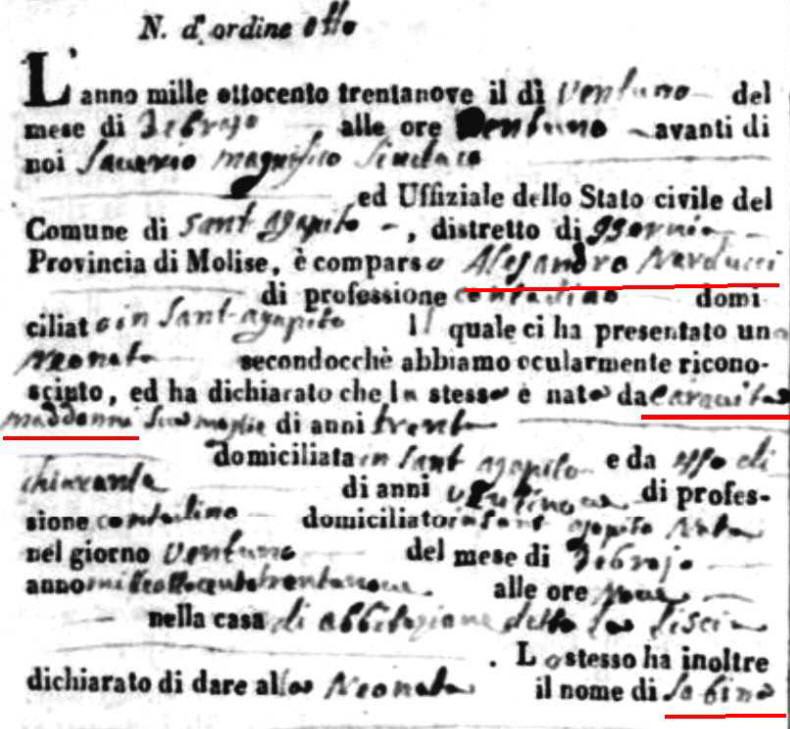 N. d'ordine otto
L'anno mille ottocento trentanove il dì ventuno del
mese di Febrajo alle ore ventuno avanti di
noi Saverio magnifico Sindaco
ed Uffiziale dello Stato civile del
Comune di Sant Agapito, distretto di
Provincia di Molise, è comparso Alesandro Narducci
di professione contadino domi
ciliato in Sant Agapito Il quale ci ha presentato una
Neonata secondocchè abbiamo ocularmente ricono-
sciuto, ed ha dichiarato che la stessa è nata da
sua moglie di anni trenta
domiciliata in Sant Agapito e da esso di
chiarante di anni di profes-
sione contadino domiciliato in Sant Agapito Nata
nel giorno ventuno del mese di Febrajo
anno milleottocentotrentanove. alle ore
nella casa di abbitazione detta
. Lo stesso ha inoltre
dichiarato di dare alla Neonata il nome di Sabina